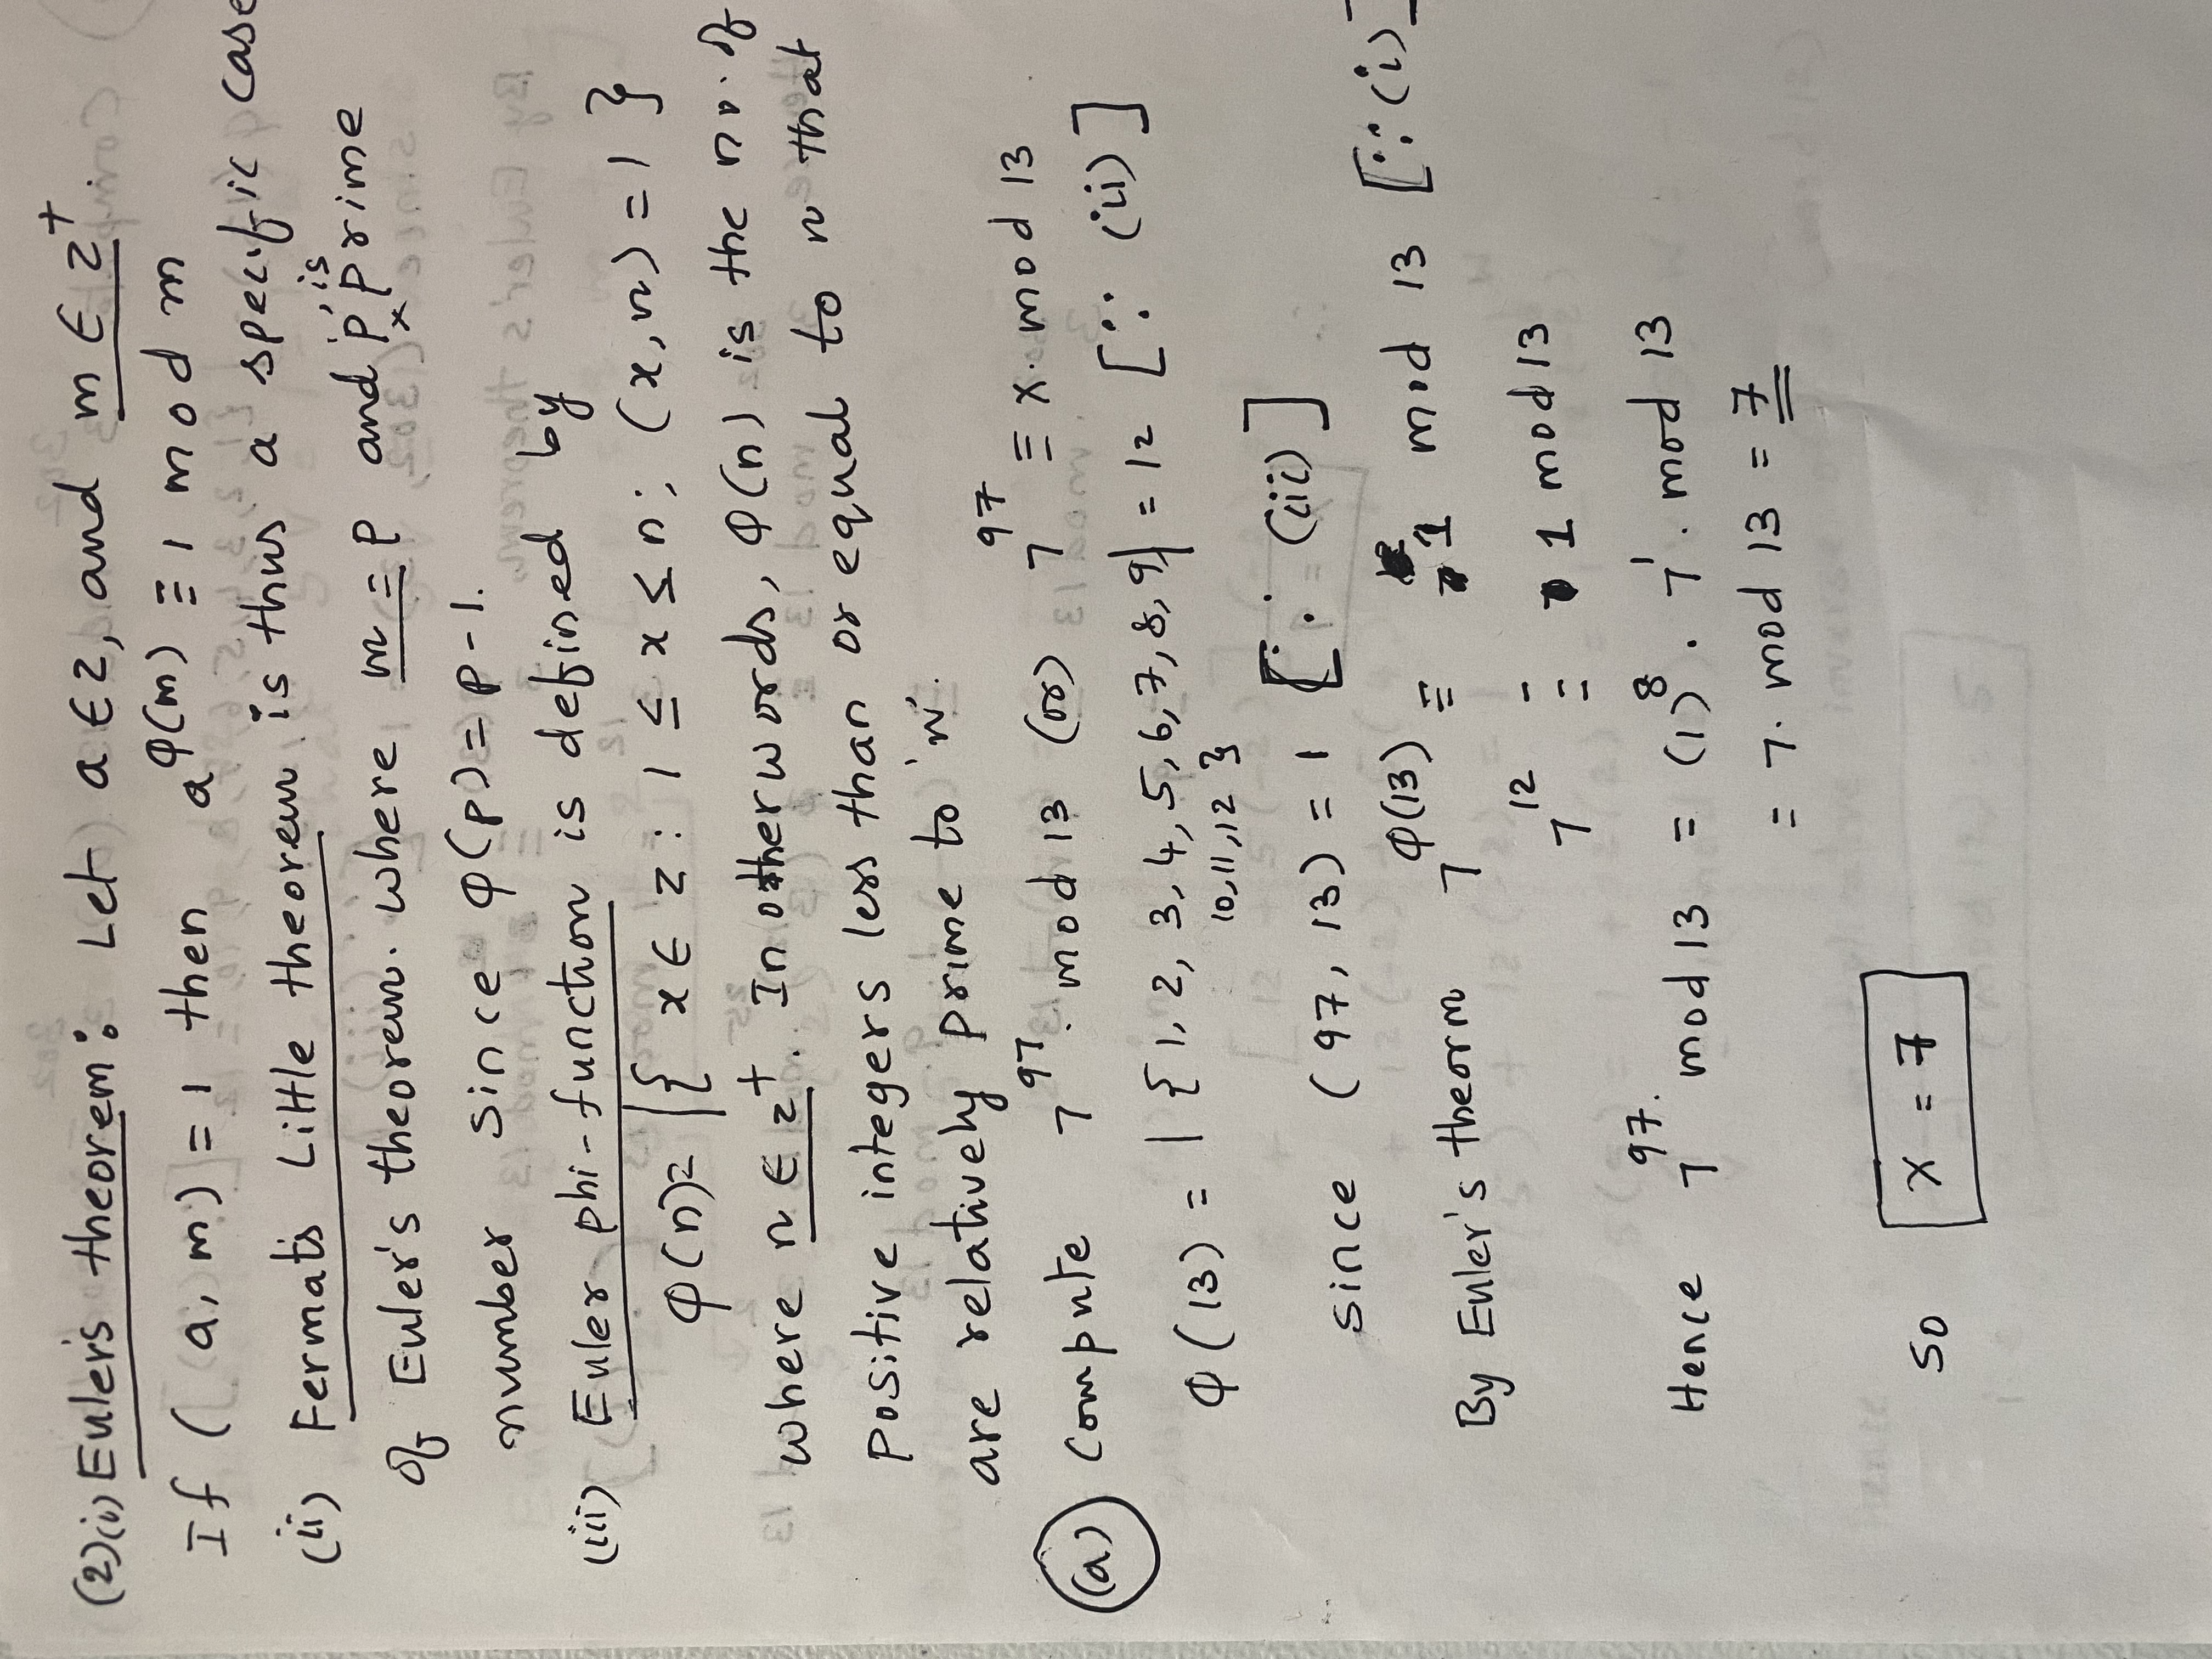 (2)(i) Euler's theorem: Let a ∈ Z, and m ∈ Z⁺.
If (a, m) = 1 then a^φ(m) ≡ 1 mod m
(ii) Fermat's Little theorem is thus a specific case
of Euler's theorem. where m = p and 'p' is prime
number since φ(p) = p - 1.
(iii) Euler phi-function is defined by
φ(n) = |{ x ∈ Z : 1 ≤ x ≤ n; (x, n) = 1 }
where n ∈ Z⁺. In other words, φ(n) is the no. of
positive integers less than or equal to n that
are relatively prime to 'n'.
(a) Compute 7^97. mod 13 (or) 7^97 ≡ x. mod 13
φ(13) = |{ 1, 2, 3, 4, 5, 6, 7, 8, 9| = 12 [∵ (ii)]
10, 11, 12 }
since (97, 13) = 1 [∵ (iii)]
By Euler's theorm 7^φ(13) ≡ 1 mod 13 [∵ (i)]
7^12 ≡ 1 mod 13
Hence 7^97. mod 13 = (1)^8 . 7^1. mod 13
= 7. mod 13 = 7
So x = 7